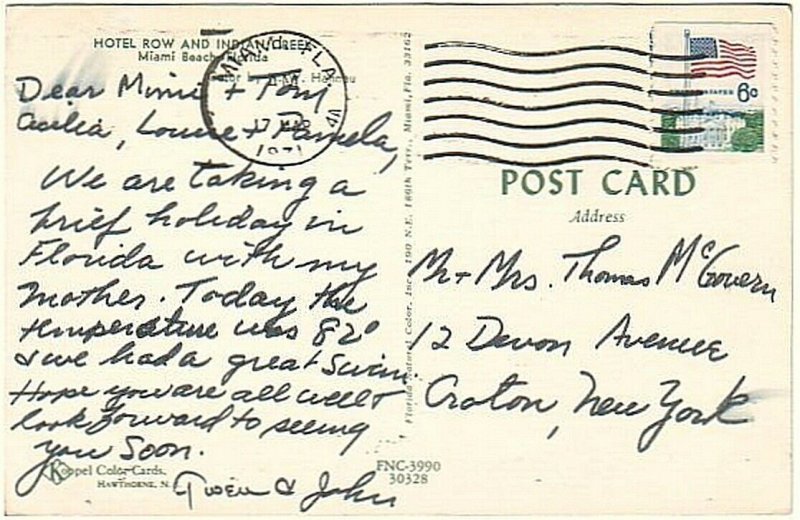 HOTEL ROW AND INDIAN CREEK
Miami Beach, Florida
Color by
Dear Mimi + Tom
Cecilia, Louise + Pamela,
We are taking a
brief holiday in
Florida with my
mother. Today the
temperature was 82°
& we had a great swim.
Hope you are all well &
look forward to seeing
you soon.
Gwen & John
Koppel Color Cards,
HAWTHORNE, N.
MIAMI, FLA.
17 MAR
1971
Florida Natural Color, Inc., 190 N.E. 186th Terr., Miami, Fla. 33162
6c
POST CARD
Address
Mr + Mrs. Thomas McGovern
12 Devon Avenue
Croton, New York
FNC-3990
30328